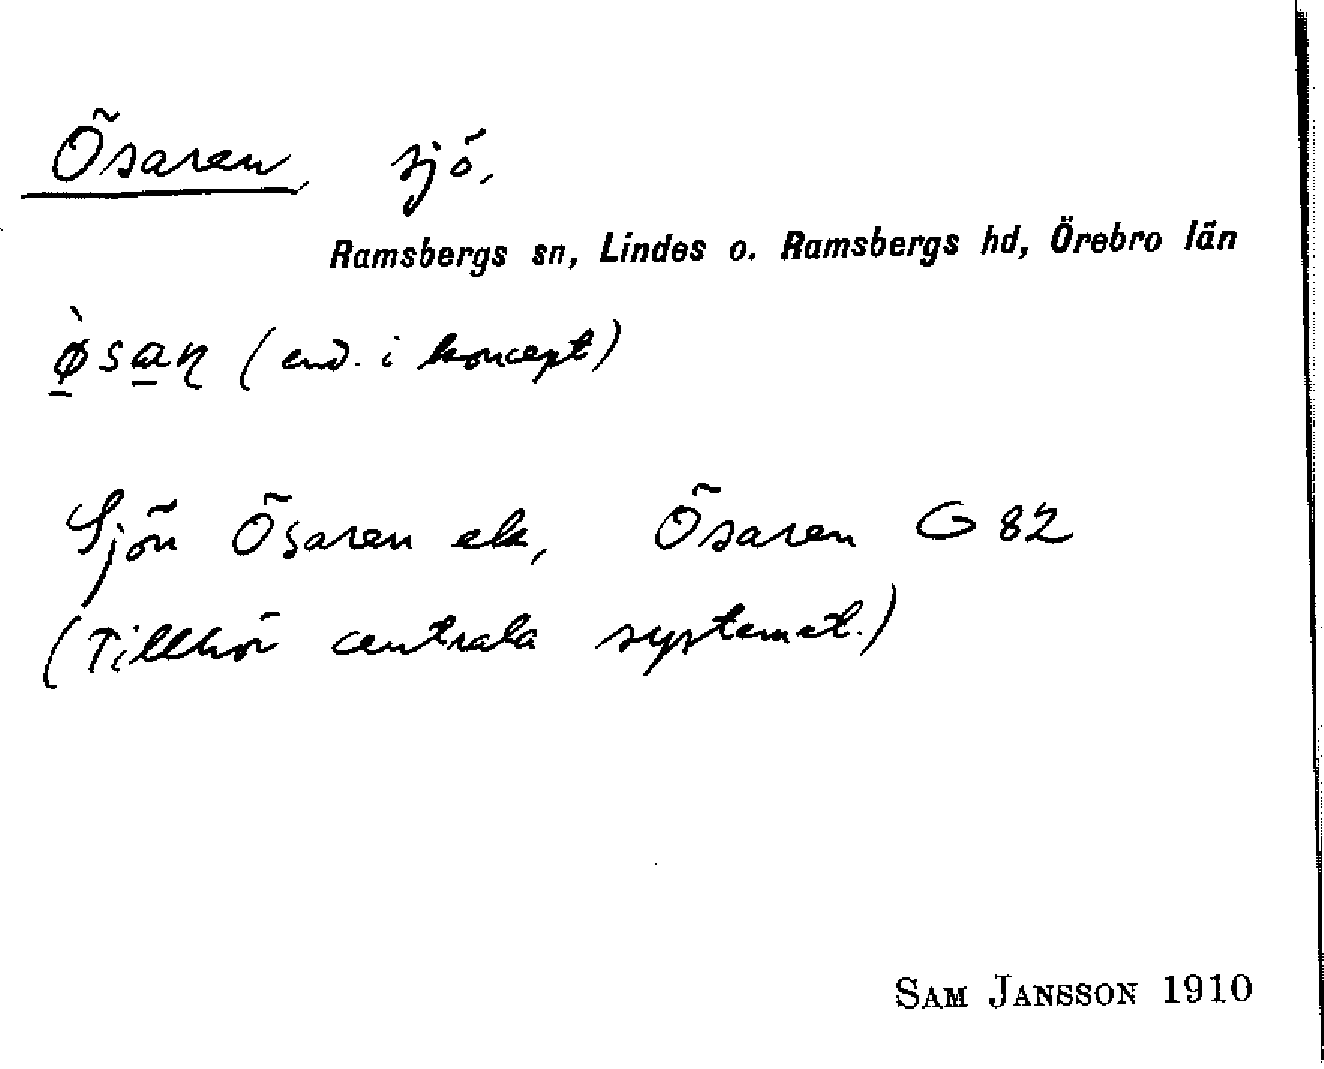 Ösaren, sjö,
Ramsbergs sn, Lindes o. Ramsbergs hd, Örebro län
ø̱̀sa̱n (end. i koncept)
Sjön Ösaren ek, Ösaren G 82
(Tillhör centrala systemet.)
SAM JANSSON 1910